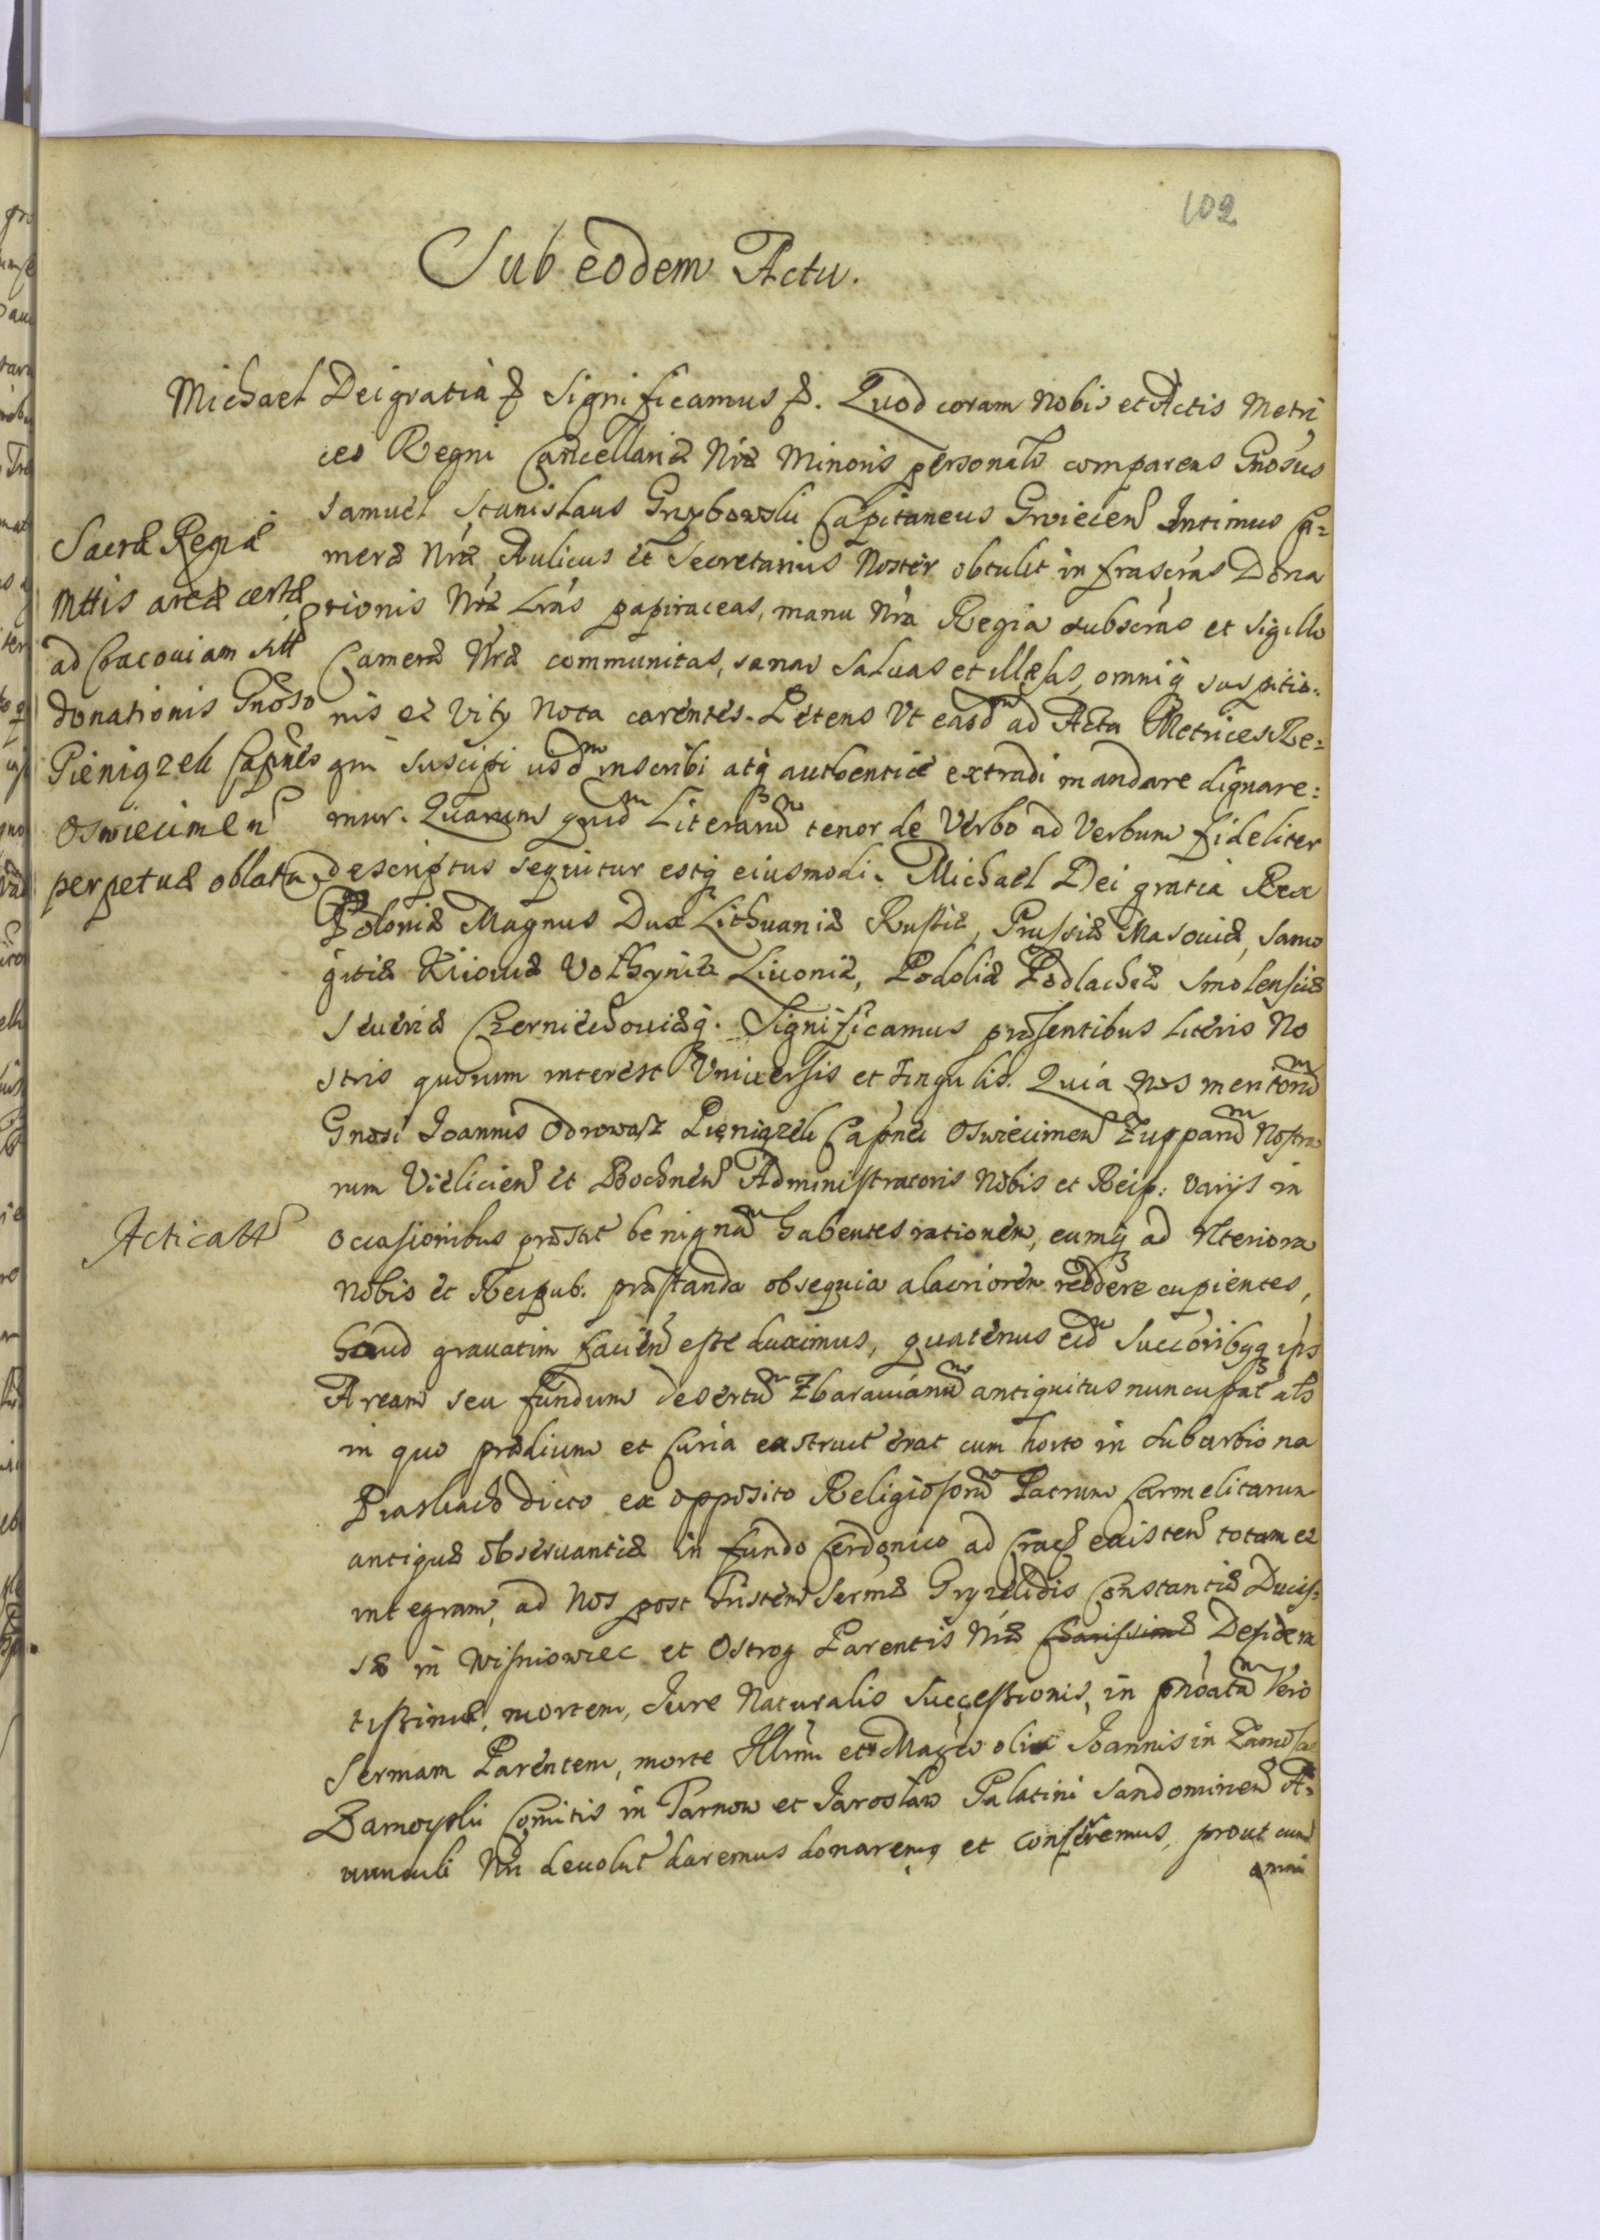 102
Sub eodem Actu.
Michael Dei gratia &. Significamus &. Quod coram Nobis et Actis Metri
ces Regni Cancellariæ Nræ Minoris personalr comparens Gnosus
Samuel Stanislaus Grzybowski Capitaneus Grviecen Intimus Ca=
meræ Nræ Aulicus et Secretarius Noster obtulit infrascras Dona
tionis Nræ Lras papiraceas, manu Nra Regia subscras et sigillo
Cameræ Nræ communitas, sanas salvas et illæsas, omniq suspitio=
nis et Vitÿ Nota carentes. Petens Vt easdm ad Acta Metrices Re=
gni suscipi ijsdm inscribi atq authentice extradi mandare dignare=
mur. Quarum quidm Literarum tenor de Verbo ad Verbum fideliter
descriptus sequitur estq eiusmodi. Michael Dei gratia Rex
Poloniæ Magnus Dux Lithuaniæ Russiæ, Prussiæ Masoviæ, Samo
gitiæ Kiioviæ Volhyniæ Livoniæ, Podoliæ Podlachiæ Smolensciæ
Severiæ Czerniechoviæq. Significamus præsentibus Literis No
stris quorum interest Vniversis et singulis. Quia Nos meritorum
Gnosi Joannis Odrowasz Pieniązek Capnei Oswiecimen Zupparum Nostra
rum Vielicien et Bochnen Administratoris Nobis et Reip: varijs in
occasionibus præstit benignam habentes rationem, eumq ad vlteriora
Nobis et Reipub. præstanda obsequia alacriorem reddere cupientes,
haud gravatim facien esse duximus, quatenus eidm Succoribusq ips
Aream seu fundum desertum Zbaravianum antiquitus nuncupat als
in quo prædium et Curia exstruct erat cum horto in suburbio na
Piaskach dicto ex opposito Religiosorum Patrum Carmelitarum
antiquæ observantiæ in fundo Cerdonico ad Crac existen totam et
integram, ad Nos post tristem Sermæ Gryzeldis Constantiæ Ducis=
sæ in Wisniowiec et Ostrog Parentis Nræ Charissimæ Desidera
tissimæ, mortem, Jure Naturalis Successionis, in pnoatam Vero
Sermam Parentem, morte Illrmi et Magci olim Joannis in Zamosc
Zamoyski Comitis in Tarnow et Jaroslaw Palatini Sandomirien A=
vunculi Nri devolut daremus donaremq et conferemus, prout cum
omni
Sacræ Regiæ
Mttis areæ certæ
ad Cracoviam sitt
donationis Gnoso
Pieniązek Capneo
Oswiecimen
perpetuæ oblata
Acticatt